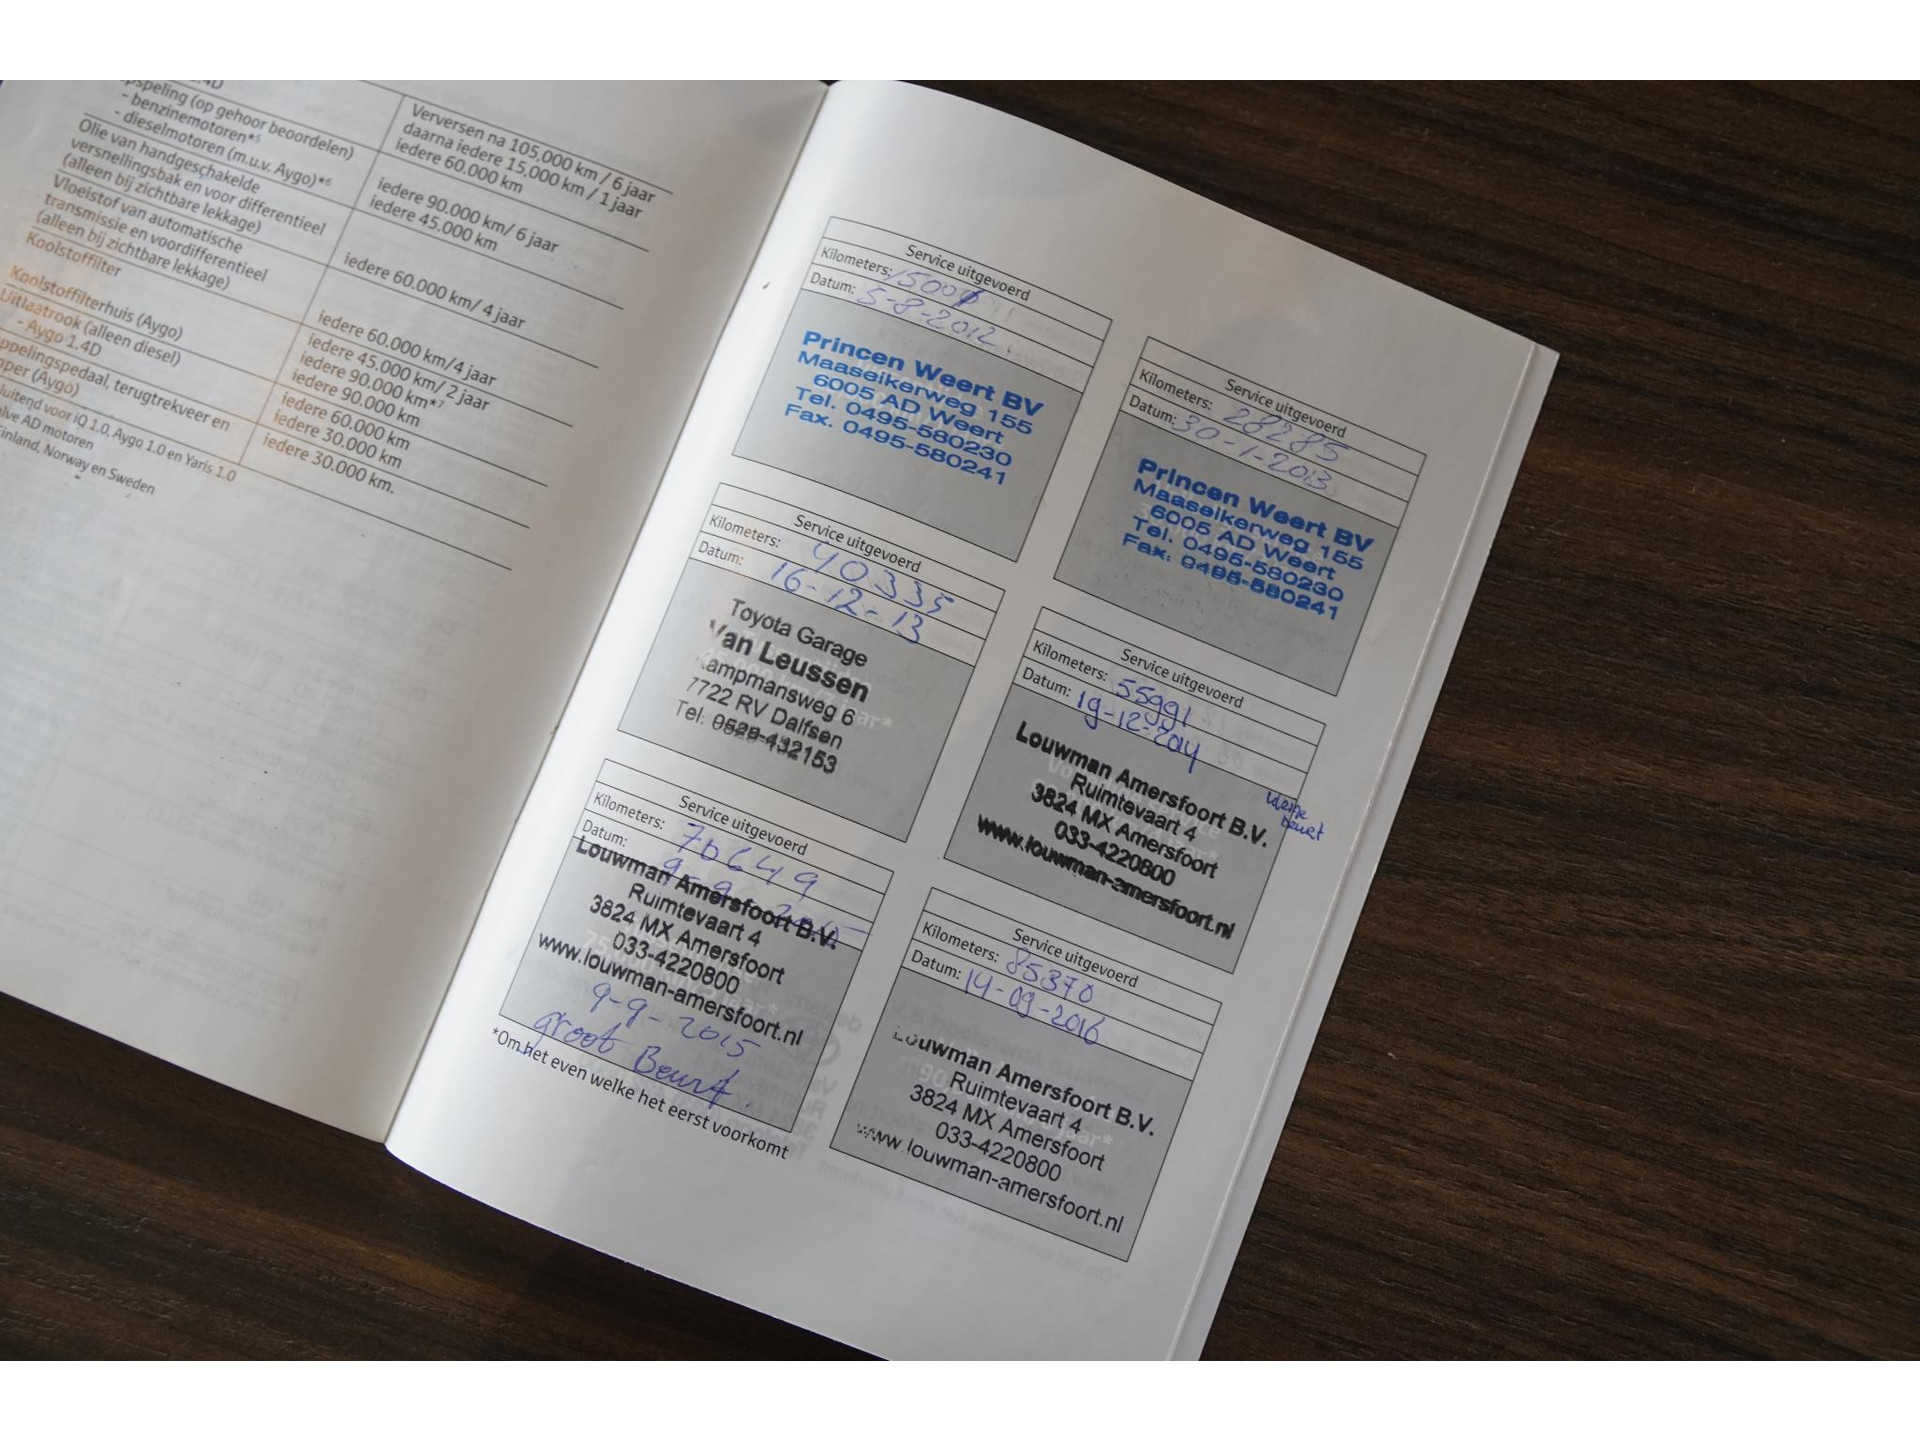 .4D
pspeling (op gehoor beoordelen)
- benzinemotoren*⁵
- dieselmotoren (m.u.v. Aygo)*⁶
Olie van handgeschakelde
versnellingsbak en voor differentieel
(alleen bij zichtbare lekkage)
Vloeistof van automatische
transmissie en voordifferentieel
(alleen bij zichtbare lekkage)
Koolstoffilter
Koolstoffilterhuis (Aygo)
Uitlaatrook (alleen diesel)
- Aygo 1.4D
ppelingspedaal, terugtrekveer en
per (Aygo)
luitend voor iQ 1.0, Aygo 1.0 en Yaris 1.0
lve AD motoren
Finland, Norway en Sweden
Verversen na 105.000 km / 6 jaar
daarna iedere 15.000 km / 1 jaar
iedere 60.000 km
iedere 90.000 km/ 6 jaar
iedere 45.000 km
iedere 60.000 km/ 4 jaar
iedere 60.000 km/4 jaar
iedere 45.000 km/ 2 jaar
iedere 90.000 km*⁷
iedere 90.000 km
iedere 60.000 km
iedere 30.000 km
iedere 30.000 km.
Service uitgevoerd
Kilometers: 15000
Datum: 5-8-2012
Princen Weert BV
Maaseikerweg 155
6005 AD Weert
Tel. 0495-580230
Fax. 0495-580241
Service uitgevoerd
Kilometers: 28285
Datum: 30-1-2013
Princen Weert BV
Maaseikerweg 155
6005 AD Weert
Tel. 0495-580230
Fax. 0495-580241
Service uitgevoerd
Kilometers: 40335
Datum: 16-12-13
Toyota Garage
Van Leussen
Kampmansweg 6
7722 RV Dalfsen
Tel. 0529-432153
Service uitgevoerd
Kilometers: 55991
Datum: 19-12-2014
Louwman Amersfoort B.V.
Ruimtevaart 4
3824 MX Amersfoort
033-4220800
www.louwman-amersfoort.nl
kleine
beurt
Service uitgevoerd
Kilometers: 70649
Datum: 9-9-2015
Louwman Amersfoort B.V.
Ruimtevaart 4
3824 MX Amersfoort
033-4220800
www.louwman-amersfoort.nl
9-9-2015
groot Beurt.
Service uitgevoerd
Kilometers: 85370
Datum: 14-09-2016
Louwman Amersfoort B.V.
Ruimtevaart 4
3824 MX Amersfoort
033-4220800
www.louwman-amersfoort.nl
*Om het even welke het eerst voorkomt